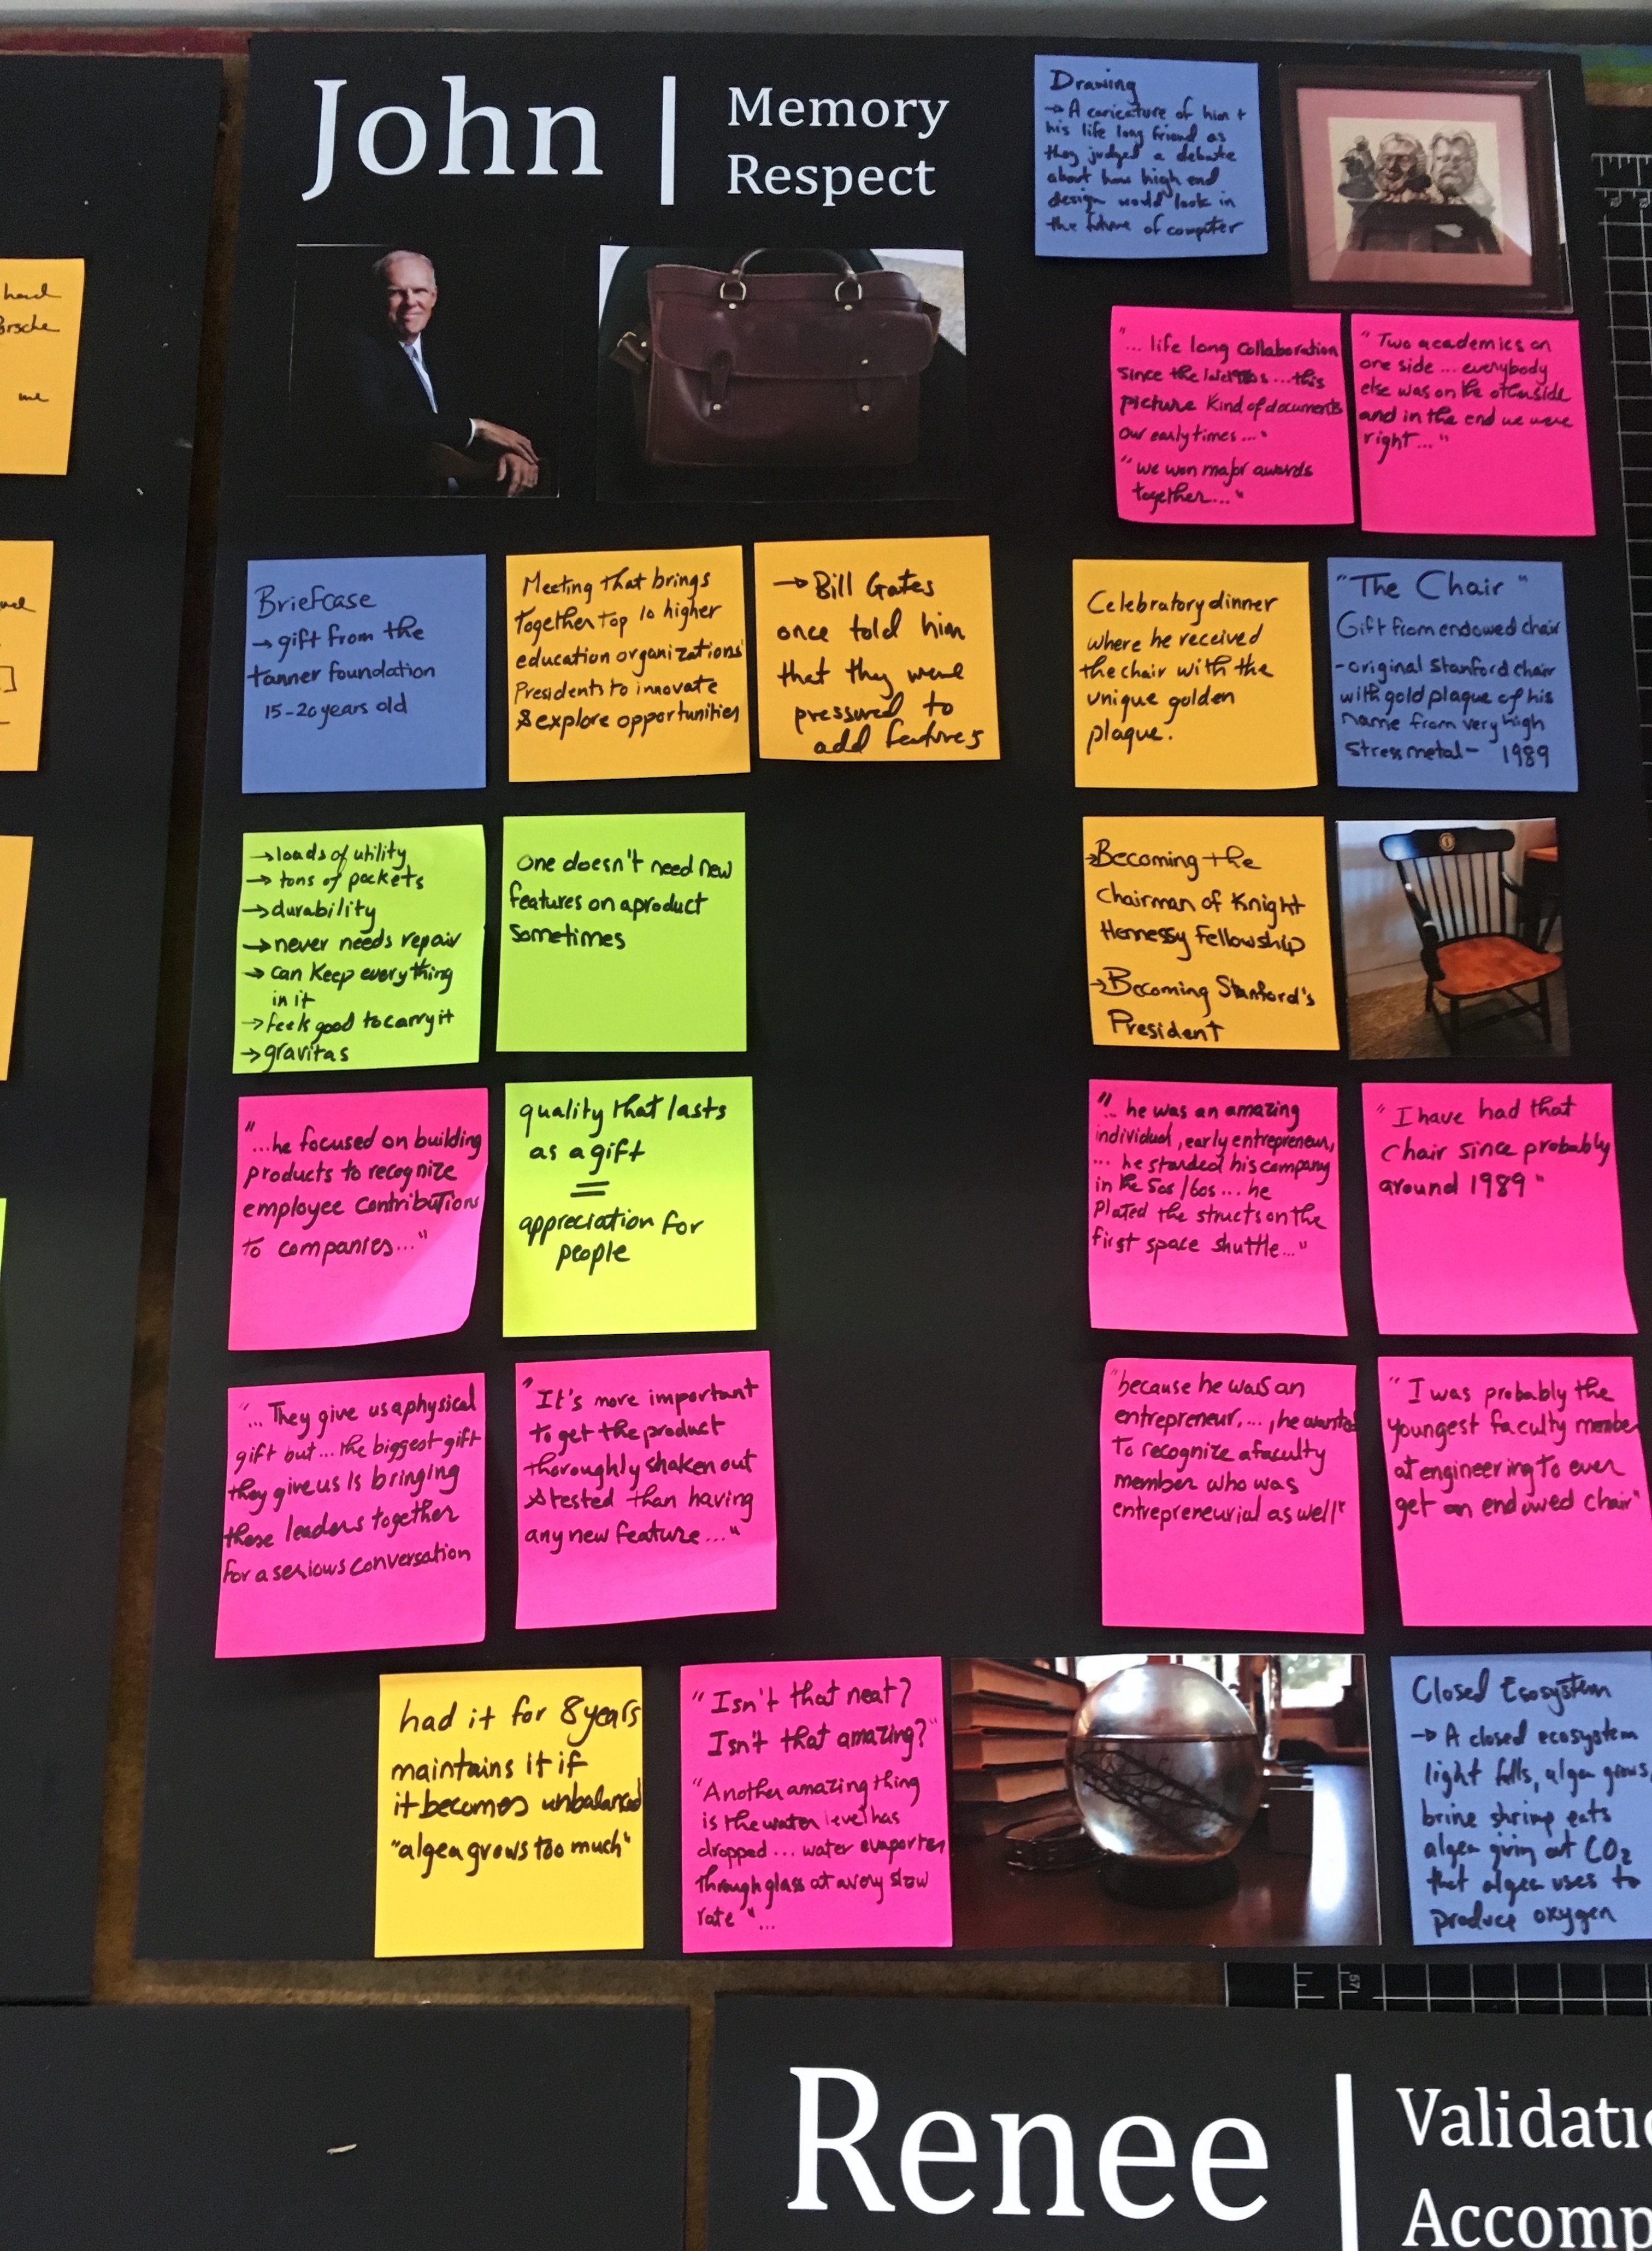 John
Memory
Respect
Drawing
→ A caricature of him +
his life long friend as
they judged a debate
about how high end
design would look in
the future of computer
"... life long collaboration
since the
picture kind of documents
our early times..."
"we won major awards
together..."
"Two academics on
one side ... everybody
else was on the otherside
and in the end we were
right..."
Briefcase
→ gift from the
tanner foundation
15-20 years old
Meeting that brings
together top 10 higher
education organizations'
Presidents to innovate
& explore opportunities
→ Bill Gates
once told him
that they were
pressured to
add features
Celebratory dinner
where he received
the chair with the
unique golden
plaque.
"The Chair"
Gift from endowed chair
-original Stanford chair
with gold plaque of his
name from very high
stress metal- 1989
→ loads of utility
→ tons of pockets
→ durability
→ never needs repair
→ can keep everything
in it
→ feels good to carry it
→ gravitas
One doesn't need new
features on a product
sometimes
→Becoming the
Chairman of Knight
Hennessy Fellowship
→Becoming Stanford's
President
"...he focused on building
products to recognize
employee contributions
to companies..."
quality that lasts
as a gift
=
appreciation for
people
".. he was an amazing
individual, early entrepreneur,
... he started his company
in the 50s/60s ... he
plated the structs on the
first space shuttle..."
"I have had that
chair since probably
around 1989"
"... They give us a physical
gift but... the biggest gift
they give us is bringing
these leaders together
for a serious conversation
"It's more important
to get the product
thoroughly shaken out
& tested than having
any new feature..."
"because he was an
entrepreneur,... , he wanted
to recognize a faculty
member who was
entrepreneurial as well"
"I was probably the
youngest faculty member
at engineering to ever
get an endowed chair"
had it for 8 years
maintains it if
it becomes unbalanced
"algea grows too much"
"Isn't that neat?
Isn't that amazing?"
"Another amazing thing
is the water level has
dropped ... water evaporates
through glass at a very slow
rate"...
Closed Ecosystem
→ A closed ecosystem
light falls, algea grows,
brine shrimp eats
algea giving out CO2
that algea uses to
produce oxygen
Renee
Validatio
Accomp